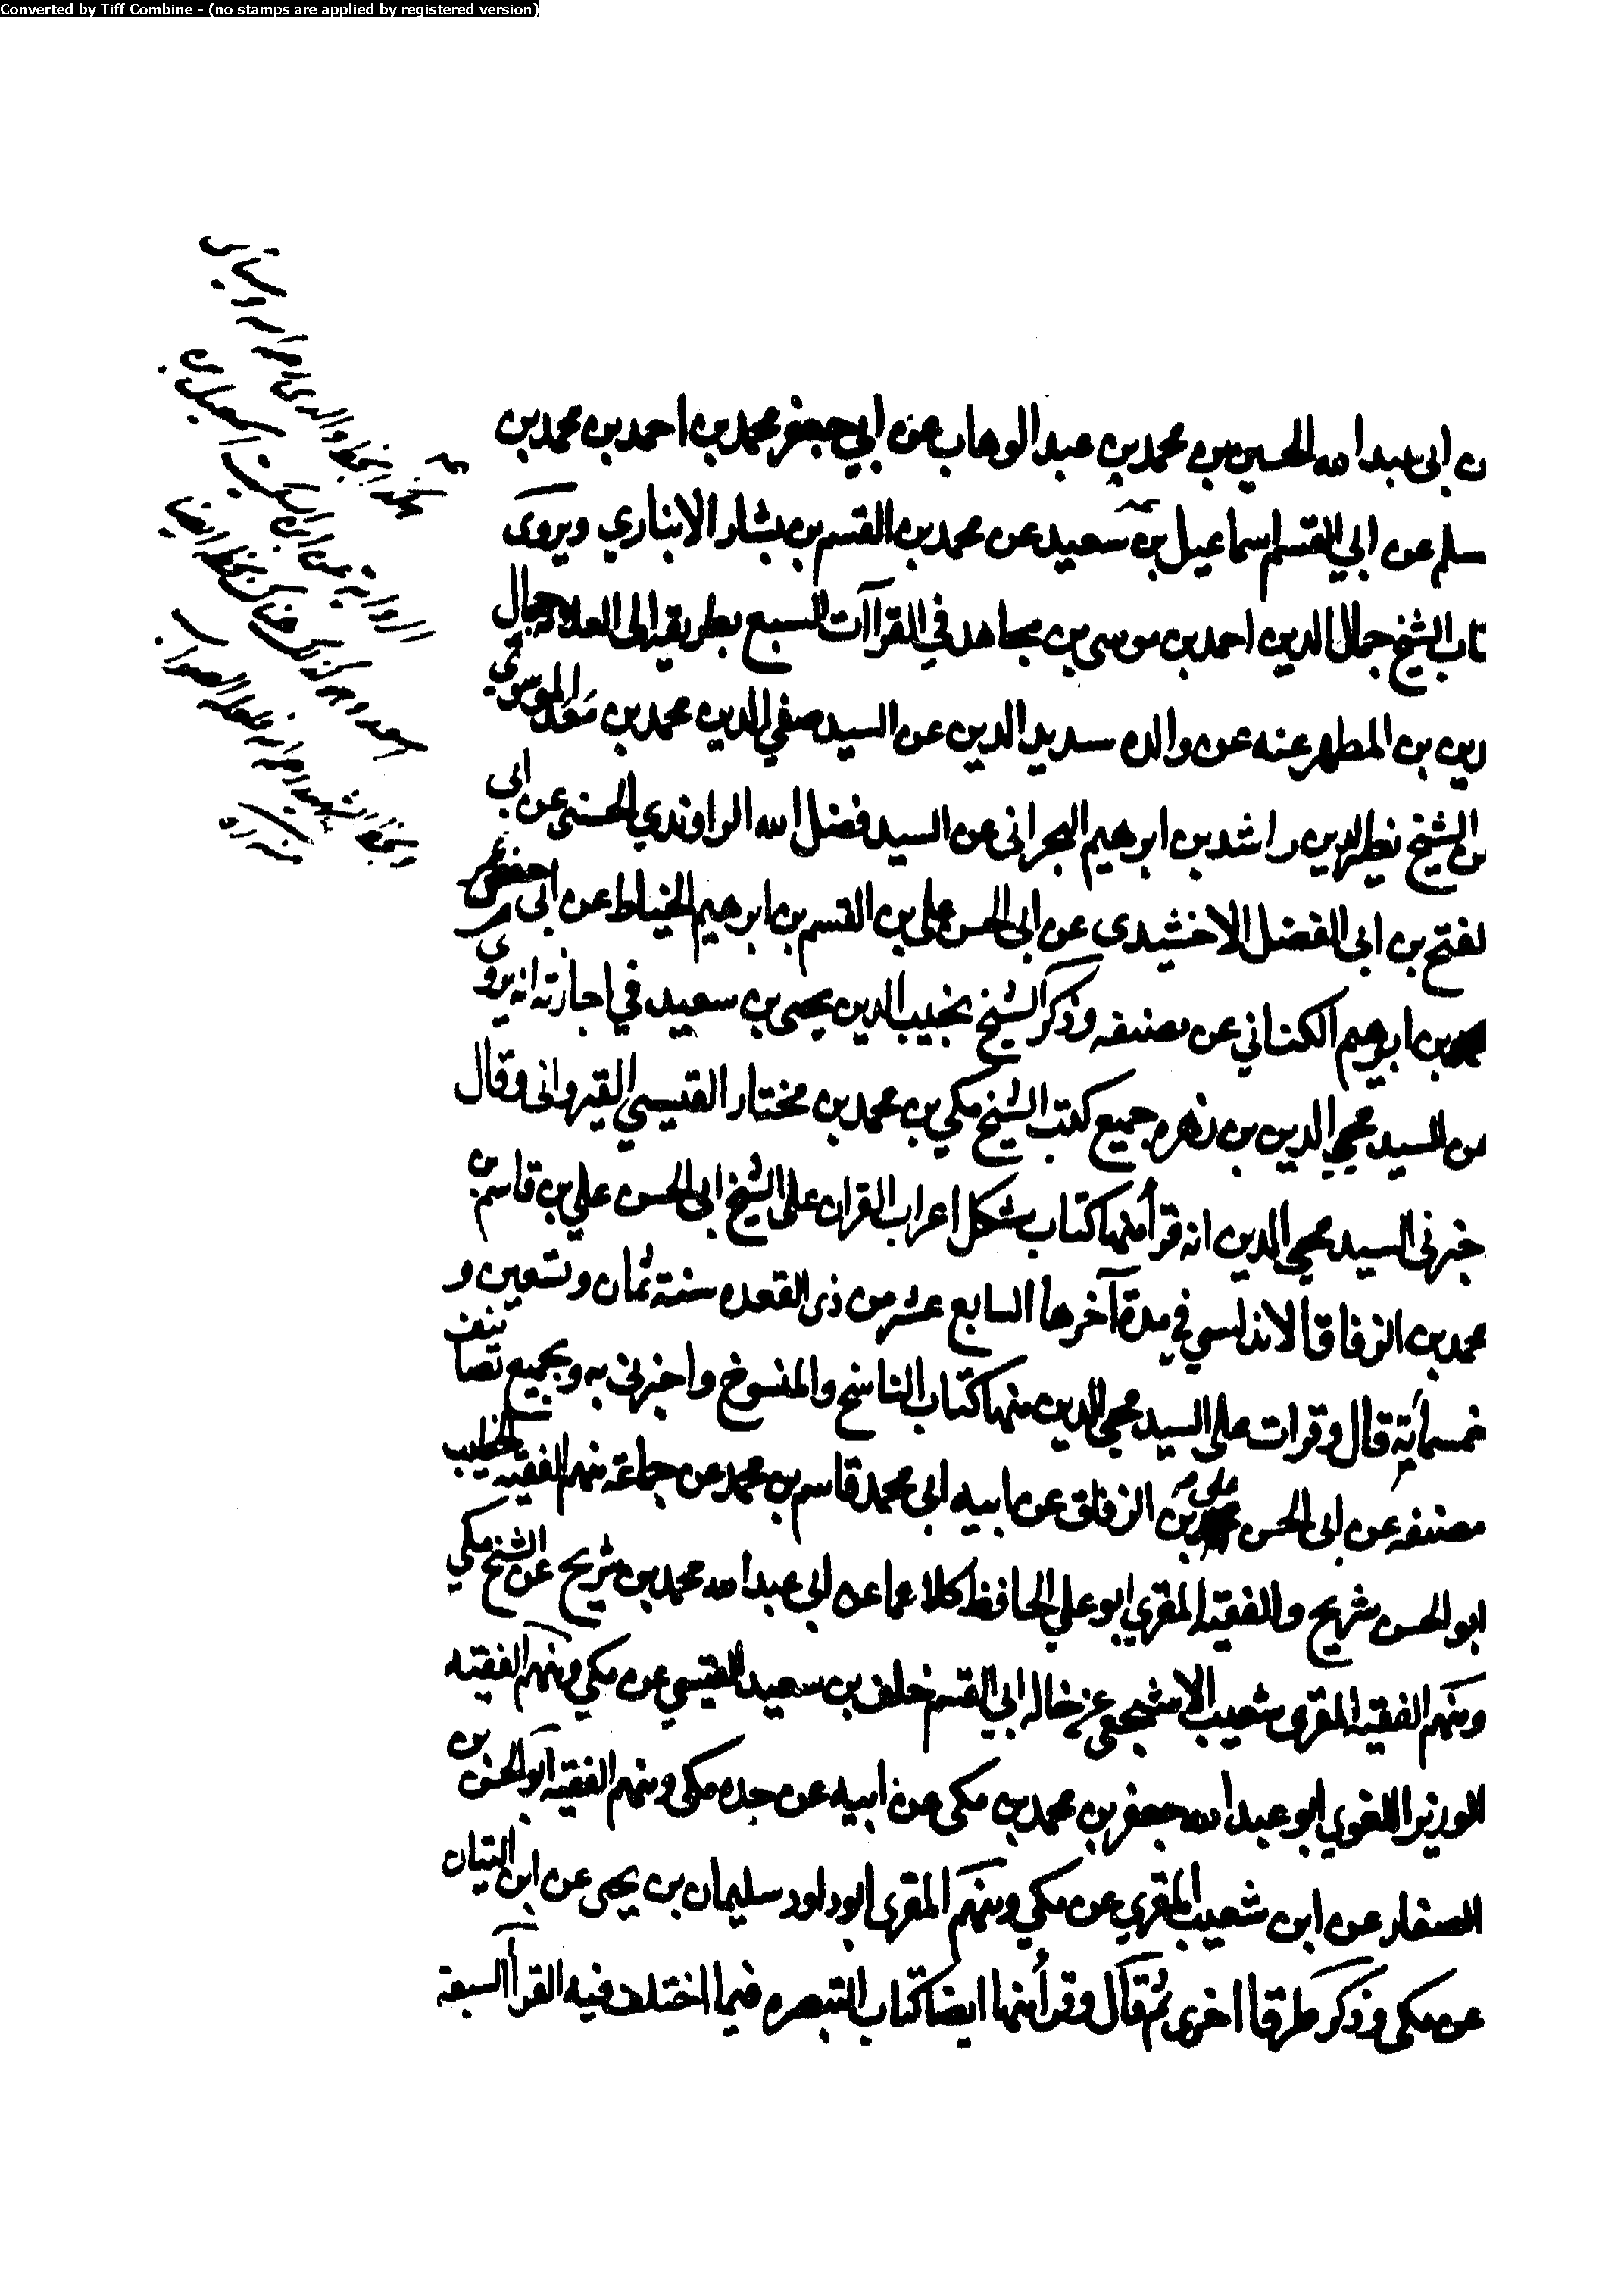 Converted by Tiff Combine - (no stamps are applied by registered version)
ن ابى عبد الله الحسين بن محمد بن عبد الوهاب عن ابي جعفر محمد بن احمد بن محمد بن
سلم عن ابي القسم اسماعيل بن سعيد عن محمد بن القسم بن بشار الانباري ويروى
تاب الشيخ جمال الدين احمد بن موسى بن مجاهد في القراآت السبع بطريقه الى العلامة جمال
دين بن المطهر عنه عن والده سديد الدين عن السيد صفي الدين محمد بن معد الموسوي
ن الشيخ نصير الدين راشد بن ابرهيم البحرانى عن السيد فضل الله الراوندي الحسنى عن ابي
لفتح بن ابى الفضل الاخشيدى عن ابى الحسن على بن القسم بن ابرهيم الخياط عن ابى حفص عمر
بن ابرهيم الكتاني عن مصنفه وذكر الشيخ نجيب الدين يحيى بن سعيد في اجازته انه يروى
عن السيد محيي الدين بن زهره جميع كتب الشيخ مكي بن محمد بن مختار القيسي القيروانى وقال
خبرنى السيد محيي الدين انه قرأ منها كتاب مشكل اعراب القران على الشيخ ابى الحسن علي بن قاسم بن
محمد بن الزقاق الاندلسي في مدة آخرها السابع عشر من ذى القعده سنة ثمان وتسعين و
خمسمائة قال وقرات على السيد محيي الدين منها كتاب الناسخ والمنسوخ واخبرنى به وبجميع تصانيف
مصنفه عن ابى الحسن على بن الزقاق عن ابيه ابى محمد قاسم بن محمد عن جماعة منهم الفقيه الخطيب
ابو الحسن شريح والفقيه المقري ابو علي الحافظ كلاهما عن ابى عبد الله محمد بن شريح عن الشيخ مكي
ومنهم الفقيه المقرى شعيب الاشجعى عن خاله ابي القسم خلف بن سعيد القيسي عن مكي ومنهم الفقيه
الوزير اللغوي ابو عبد الله جعفر بن محمد بن مكى عن ابيه عن جده مكى ومنهم الفقيه ابو الحسن بن
الصفار عن ابن شعيب المقري عن مكي ومنهم المقرى ابو داود سليمان بن يحيى عن ابن البيان
عن مكى وذكر طرقا اخرى ثم قال وقرأ منها ايضا كتاب التبصره فيما اختلف فيه القرآ السبعة